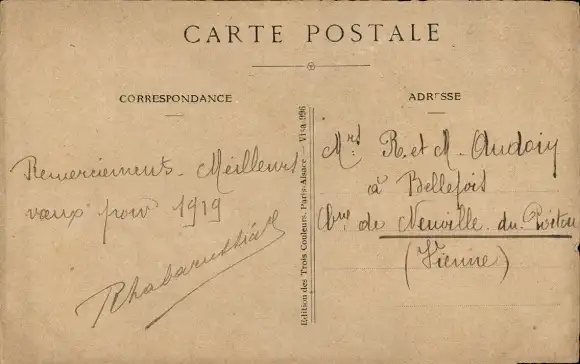 CARTE POSTALE
CORRESPONDANCE
Remerciements - Meilleurs
vœux pour 1919
ADRESSE
Mrs R. et M. Audoin
à Bellefois
de Neuville du Poitou
(Vienne)
Edition des Trois Couleurs. Paris-Alsace - Visa 996